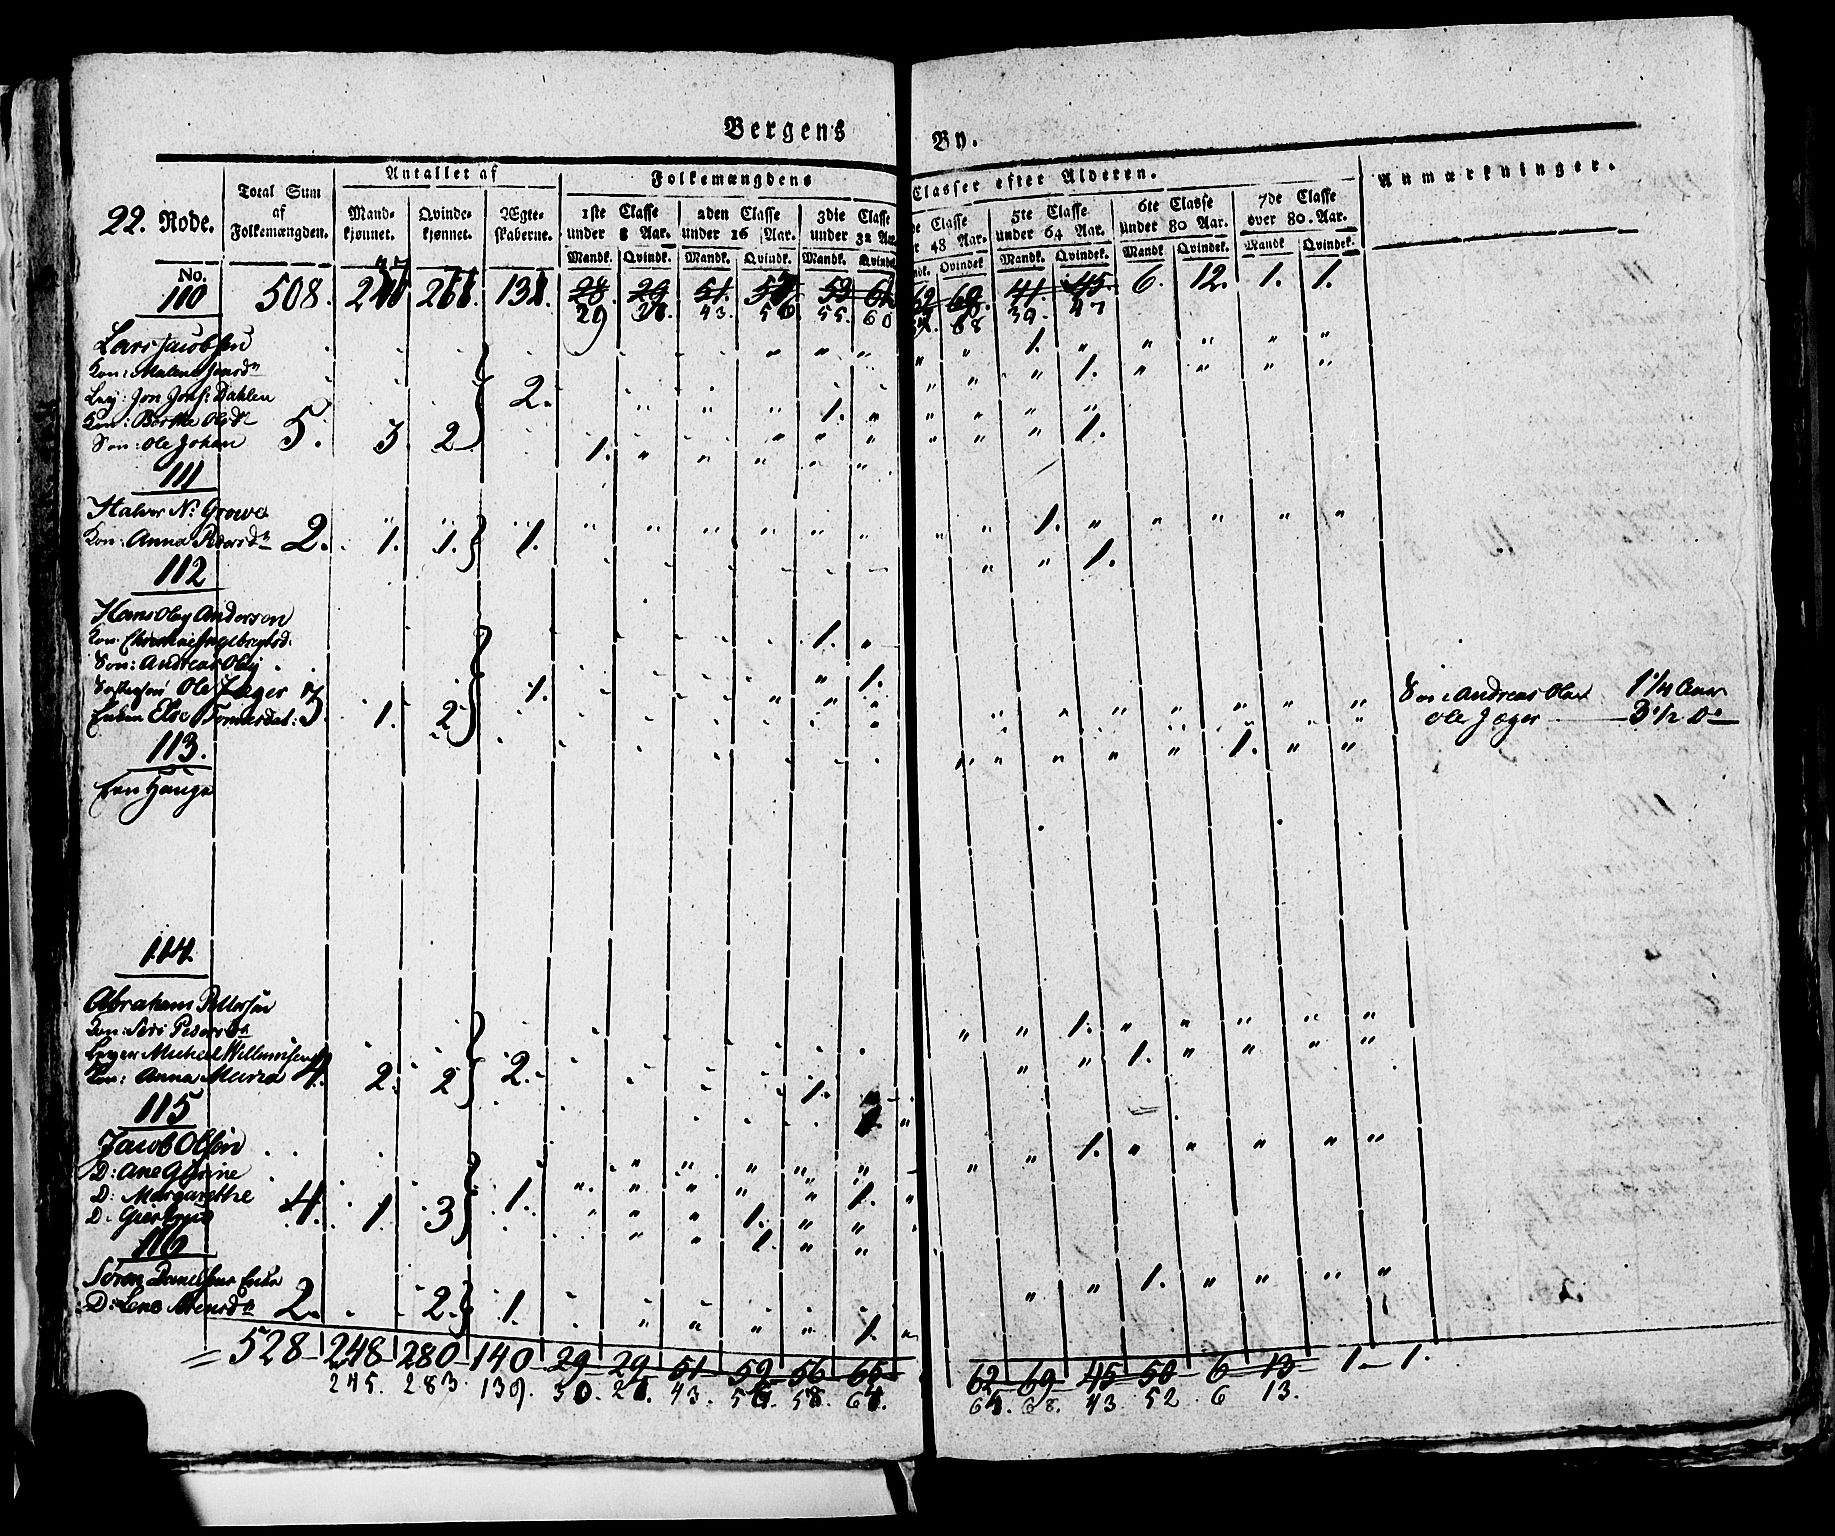 Bergens By.
22. Rode. Total Sum af Folkemængden. Antallet af Mandkjønnet. Qvindekjønnet. Ægteskaberne. Folkemængdens Classer efter Alderen. Anmærkninger.
1ste Classe under 8 Aar. 2den Classe under 16 Aar. 3die Classe under 32 Aar. Classe 48 Aar. 5te Classe under 64 Aar. 6te Classe under 80 Aar. 7de Classe over 80. Aar.
Mandk. Qvindk. Mandk. Qvindk. Mandk. Qvindek. Qvindek Mandk. Qvindek. Mandk Qvindek. Mandk Qvindek.
No. 110 508. 6. 12. 1. 1.
29 43. 55. 60 68 39. 47
Lars Jacobsen 1.
Kon: Malene 1.
Jon Dahlen 2. 1.
Kon: Berthe Olsd 1.
Søn: Ole Johan 5. 3 2 1.
111
Halvor N. Growe 1.
Kon: Anna Pedersd 2. 1. 1. 1. 1.
112
Hans Olaj Anderson 1.
Kon: Ingebrigtsd.
Søn: Andreas Olaj 1.
Ole Jæger 1.
Enken Else Tormosdat: 3. 1. 2 1.
Søn: Andreas Olai 1 1/4 Aar
Ole Jæger 3 1/2 Do
113.
Een Hauge
114.
Abraham Pettersen 1.
Kon: Siri Pedersda 1.
Michel Willumsen
Kon: Anna Maria 4. 2. 2 2. 1. 1.
115
Jacob Olsen 1.
D: Ane 1.
D: Margarethe 4. 1. 3 1. 1.
D: 1.
116
Søren Danielsens Enke 1.
D: Lene 2. 2. 1. 1.
528 248 280 140 29 29 51 59 56 65 62 69 45 50 6 13 1 1.
245. 283. 139. 43. 68. 43. 52 6 13.